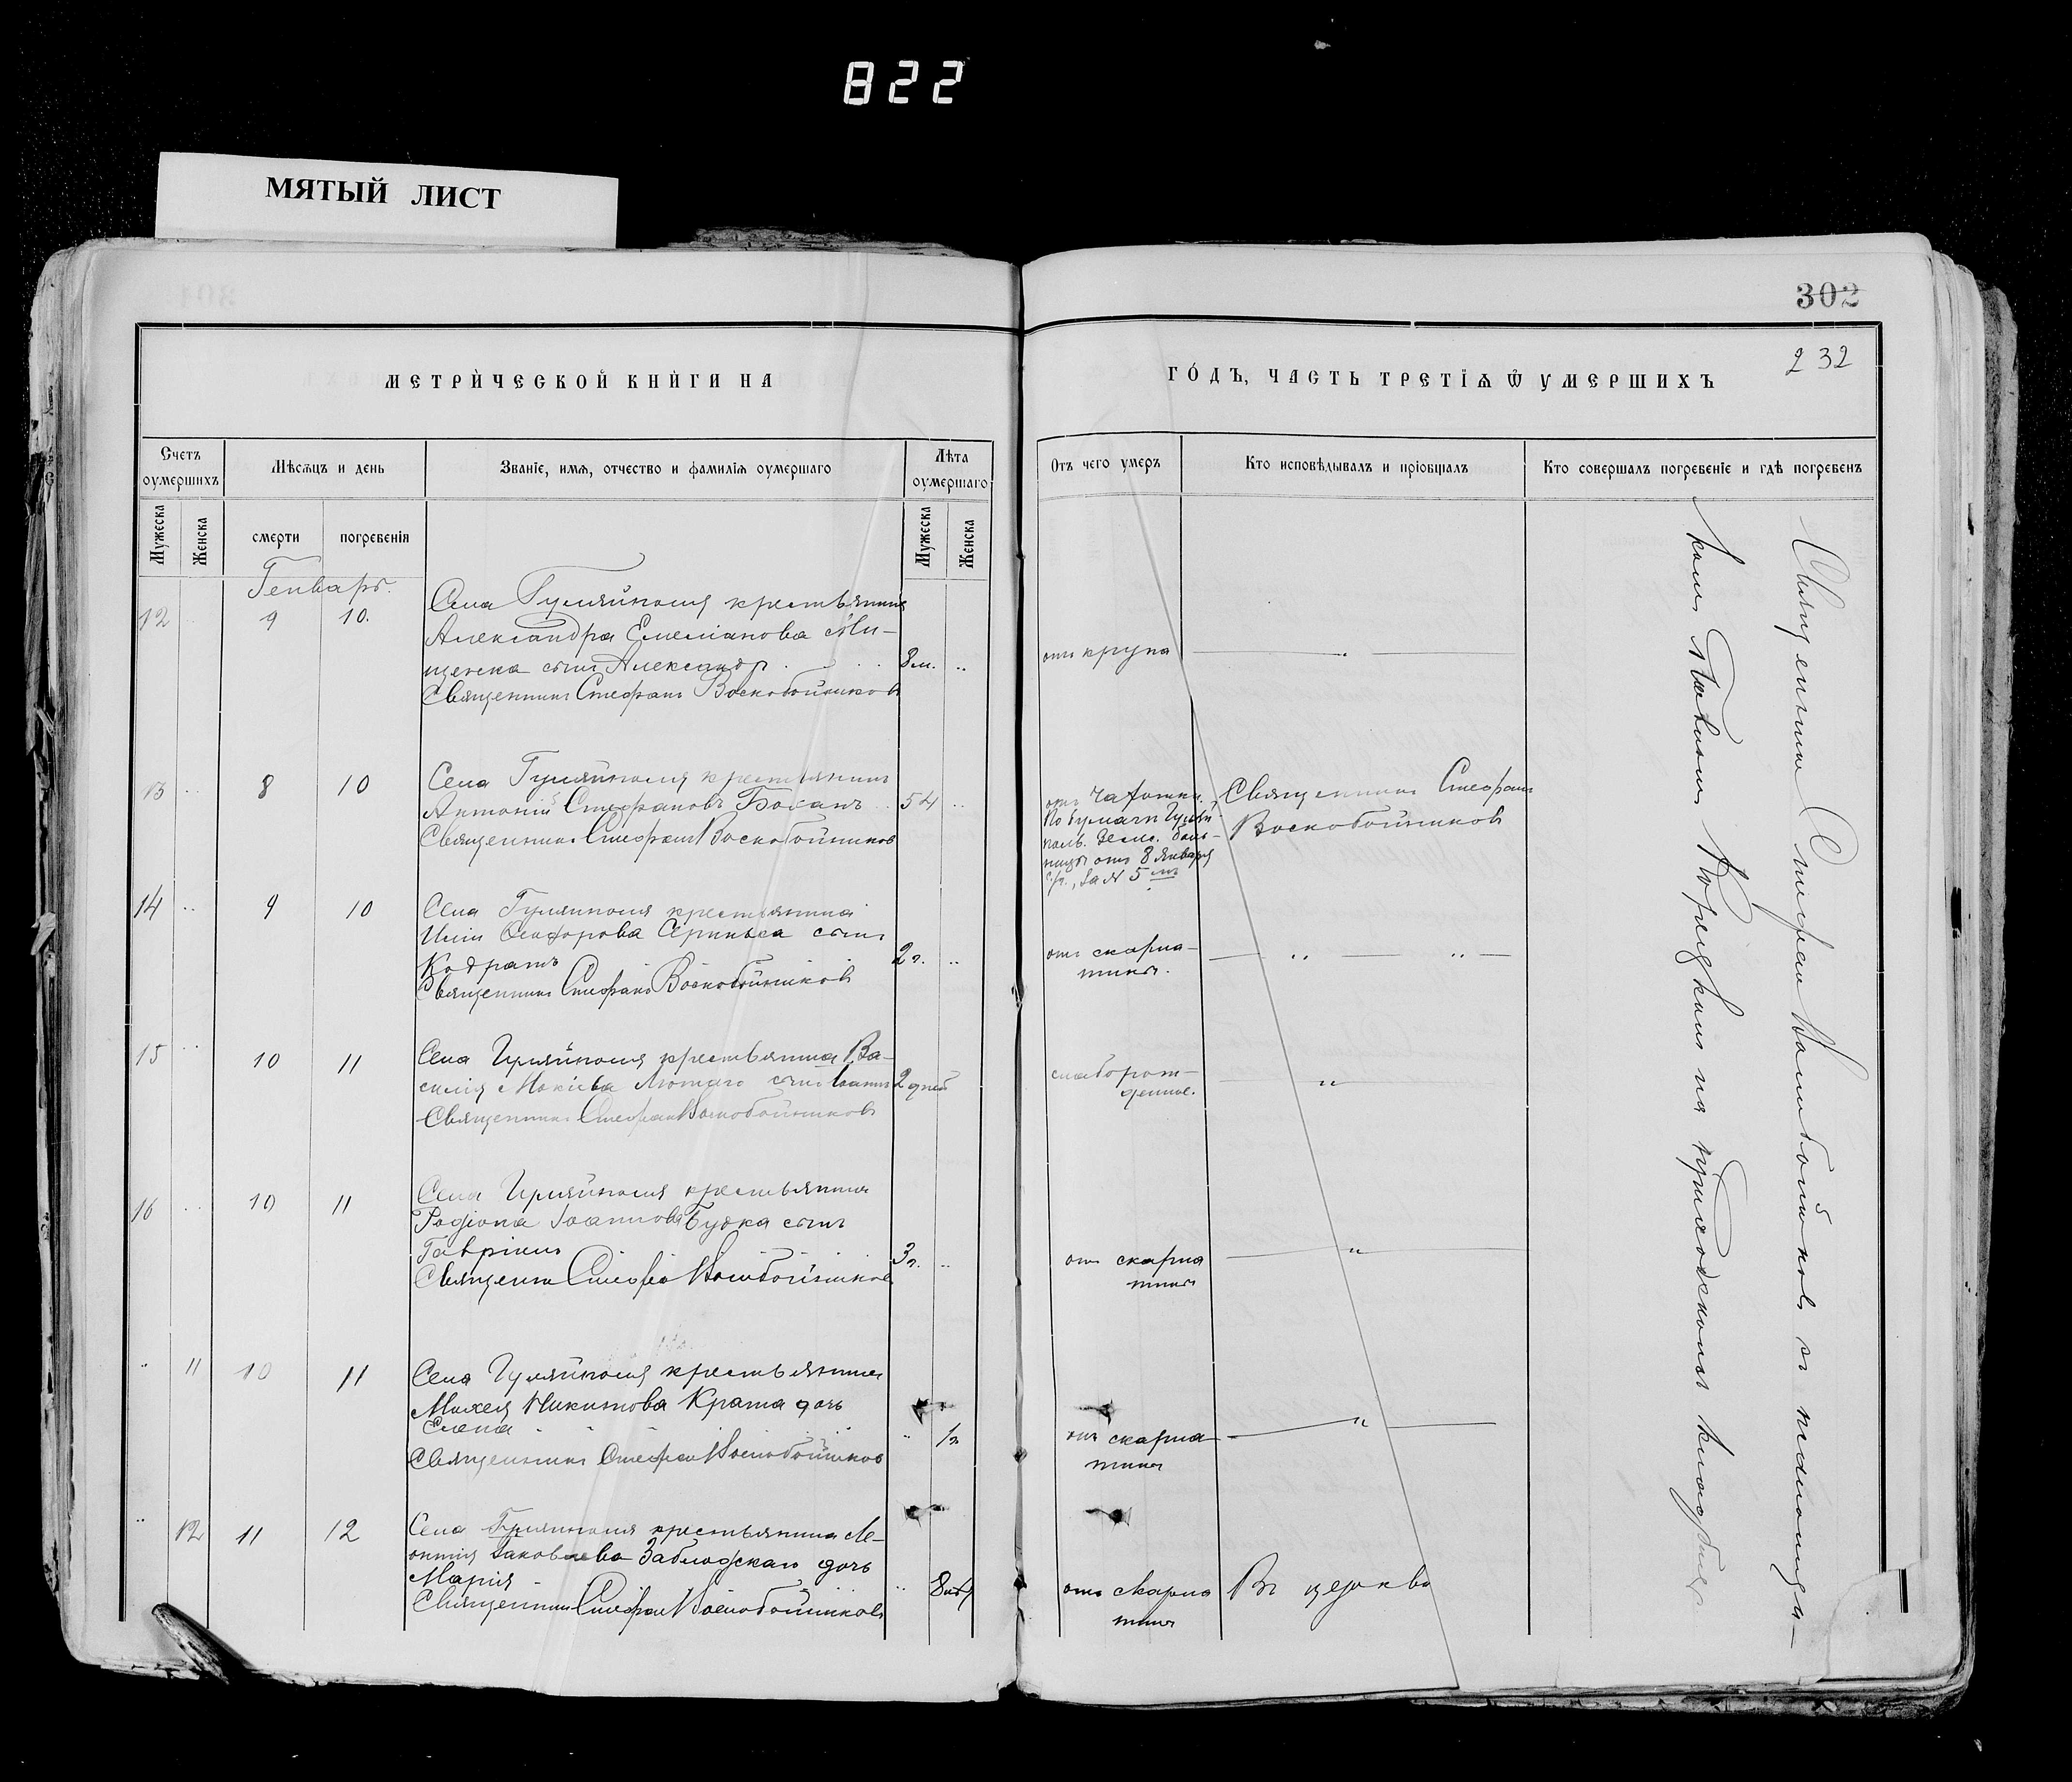 822
МЯТЫЙ ЛИСТ
302
232
МЕТРИ́ЧЕСКОЙ КНИ́ГИ НА
ГО́ДЪ, ЧАСТЬ ТРЕТІѦ Ѿ УМЕРШИХЪ
Счетъ оумершихъ
Мѣсѧцъ и день
Званіе, имѧ, отчество и фамиліѧ оумершаго
Лѣта оумершаго
Мужеска
Женска
смерти
погребеніѧ
Мужеска
Женска
Отъ чего умеръ
Кто исповѣдывалъ и пріобщалъ
Кто совершалъ погребеніе и гдѣ погребенъ
Генварь.
12 9 10.
Села Гуляйполя крестьянина
Александра Емеліанова Ми-
щенка сынъ Александр 8 м.
Священникъ Стефанъ Воскобойниковъ
отъ крупа
13 8 10
Села Гуляйполя крестьянинъ
Антоній Стефановъ Боханъ 54
Священникъ Стефанъ Воскобойниковъ
отъ чахотки.
По бумагѣ Гуляй-
польс. Земс. боль-
ницы отъ 8 Января
с/г., за № 5мъ
Священникъ Стефанъ
Воскобойниковъ
14 9 10
Села Гуляйполя крестьянина
Иліи Феодорова сынъ
Кодратъ 2 г.
Священникъ Стефанъ Воскобойниковъ
отъ скарла-
тины.
15 10 11
Села Гуляйполя крестьянина Ва-
силія Мокіева Лютаго сынъ Іоаннъ 2 дней
Священникъ Стефанъ Воскобойниковъ
слаборож-
денные.
16 10 11
Села Гуляйполя крестьянина
Родіона Іоаннова Будка сынъ
Гавріилъ 3 г.
Священникъ Стефанъ Воскобойниковъ
отъ скарла
тины
11 10 11
Села Гуляйполя крестьянина
Михея Никитова Крата дочь
Елена 1 г.
Священникъ Стефанъ Воскобойниковъ
отъ скарла-
тины
12 11 12
Села Гуляйполя крестьянина Ле-
онтія Іаковлева Заблодскаго дочь
Марія 8 лѣтъ
Священникъ Стефанъ Воскобойниковъ
отъ скарла
тины
Въ церкви
Священникъ Стефанъ Воскобойниковъ съ псаломщи-
комъ на приходскомъ кладбищѣ